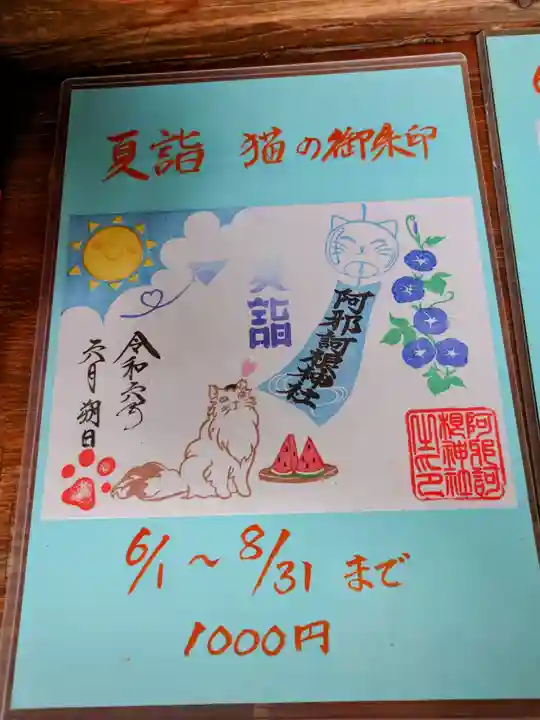 夏詣 猫の御朱印
夏詣
阿邪訶根神社
令和六年
六月朔日
阿邪訶
根神社
之印
6/1~8/31まで
1000円